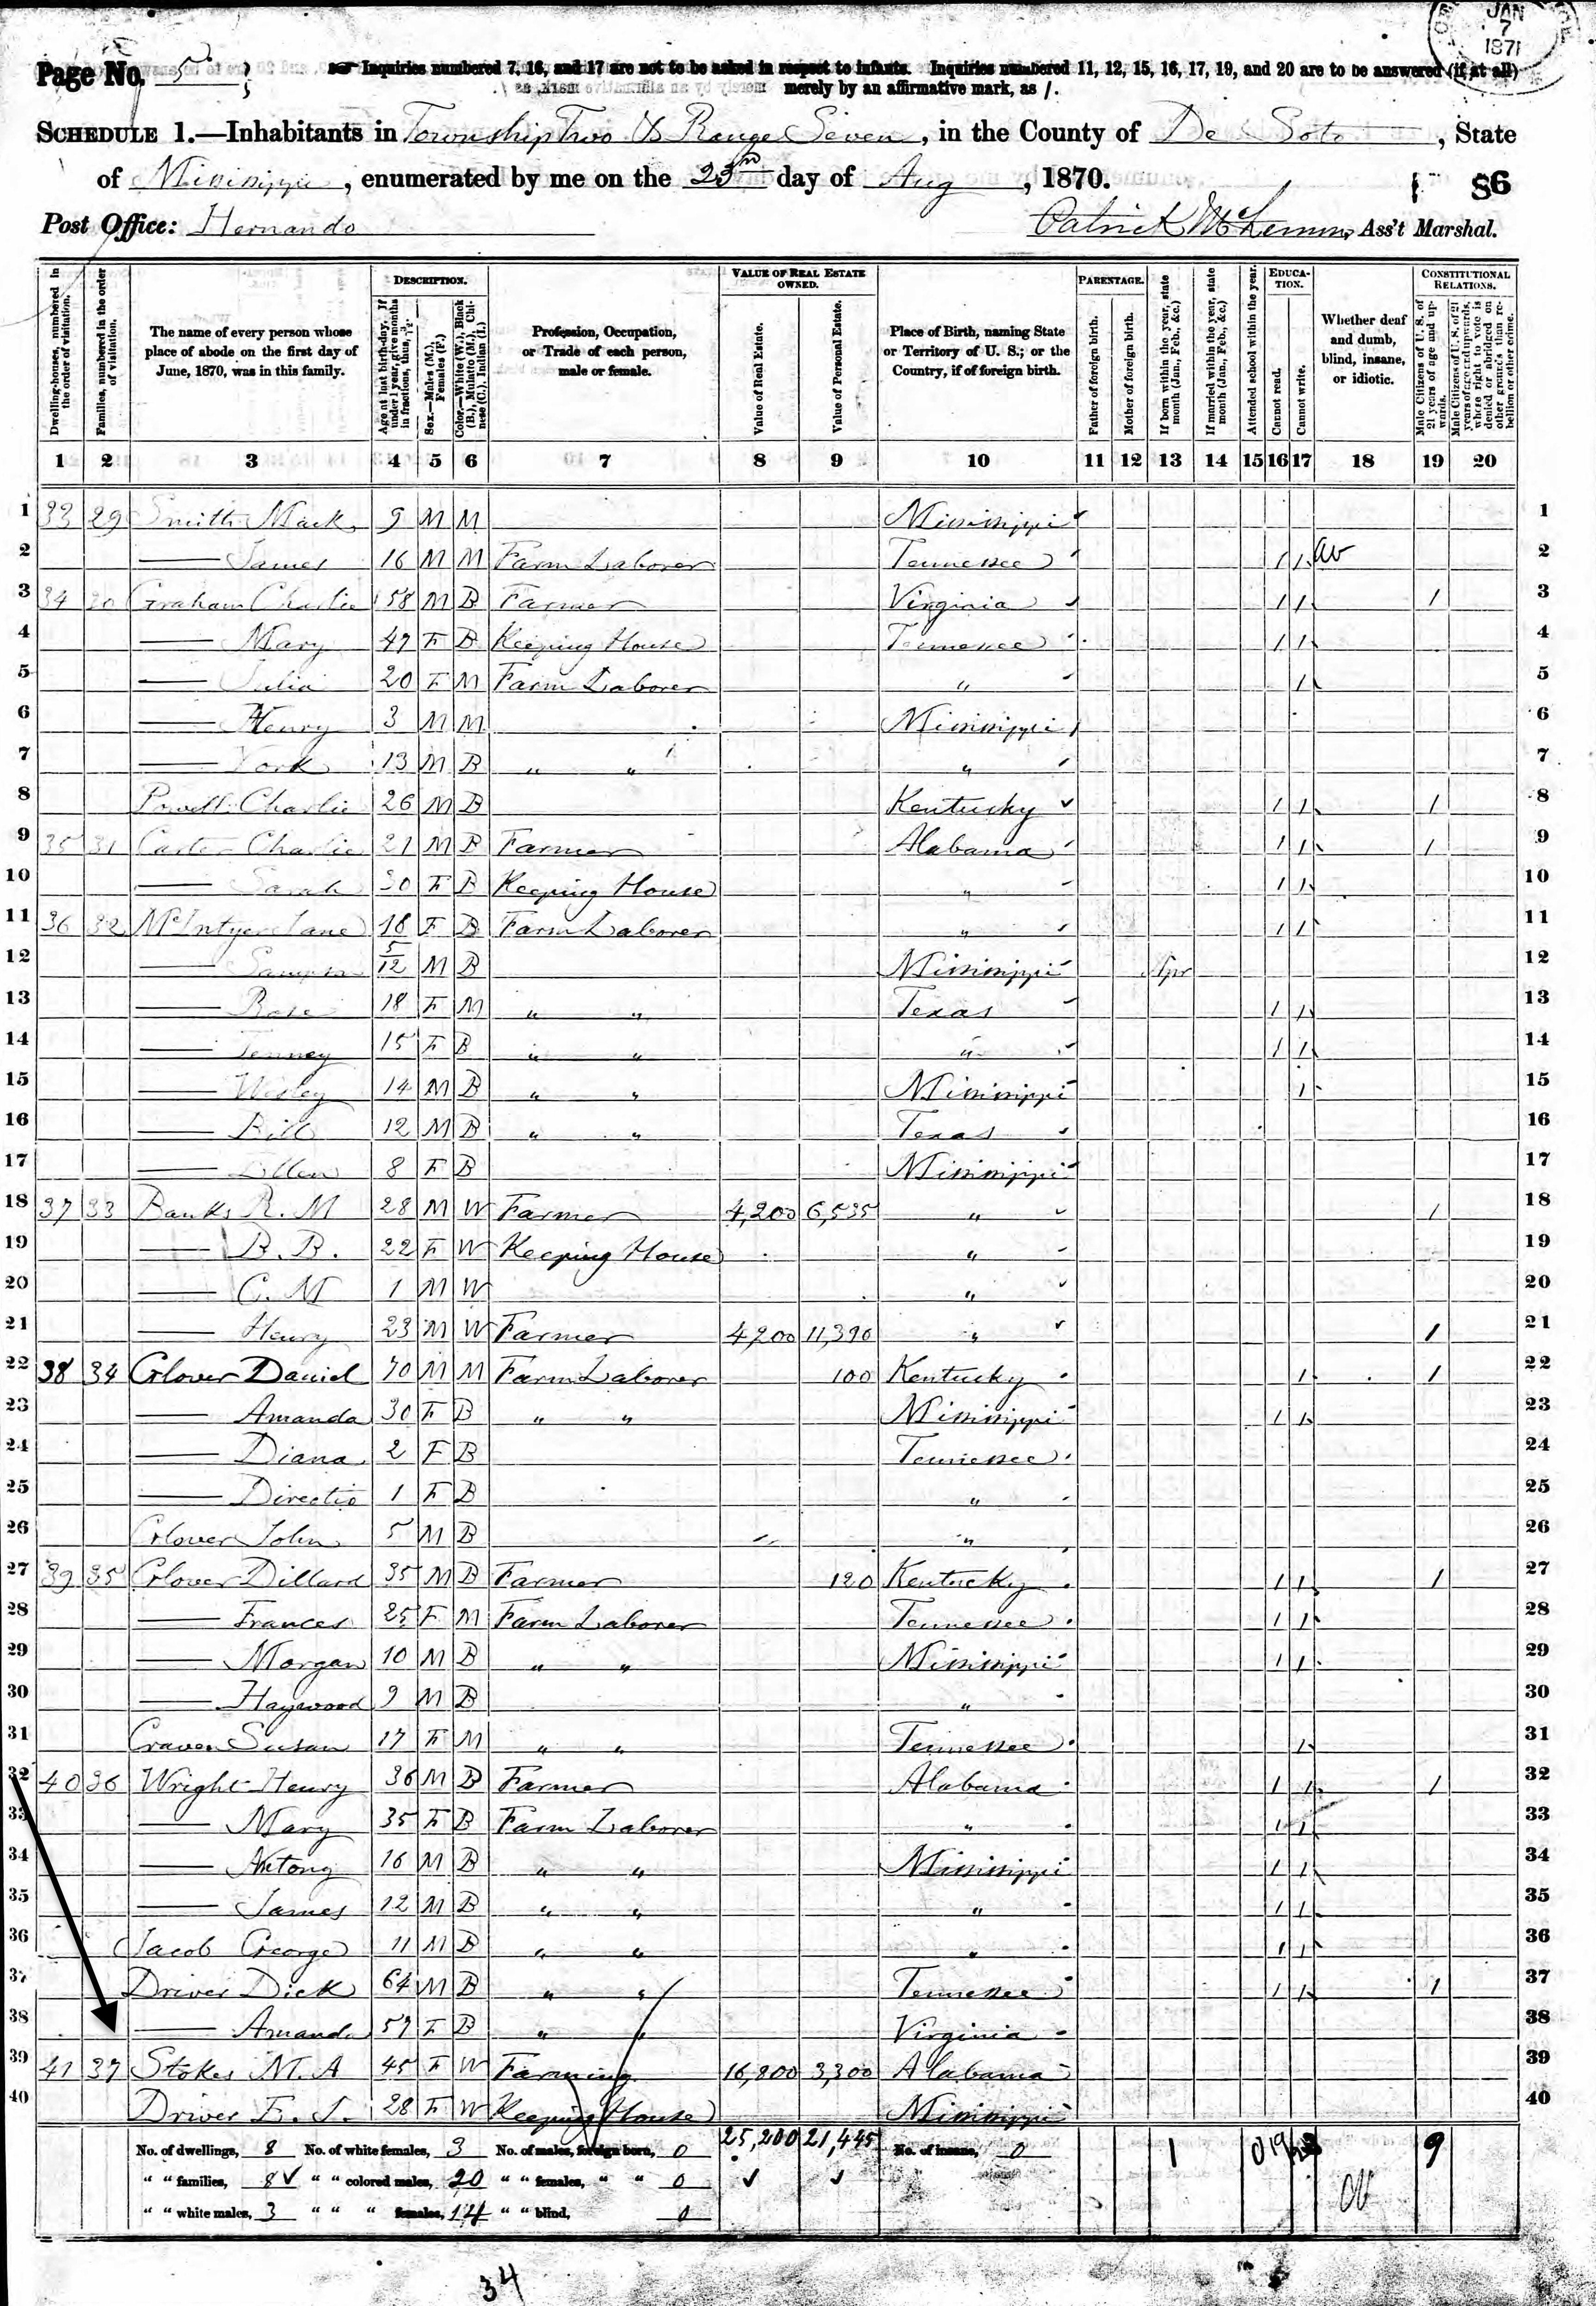 JAN
7
1871
Page No. 5
Inquiries numbered 7, 16, and 17 are not to be asked in respect to infants. Inquiries numbered 11, 12, 15, 16, 17, 19, and 20 are to be answered (if at all)
merely by an affirmative mark, as /.
SCHEDULE 1.—Inhabitants in Township Two & Range Seven, in the County of De Soto, State
of Mississippi, enumerated by me on the 23rd day of Aug, 1870. 86
Post Office: Hernando Patrick Ass't Marshal.
DESCRIPTION. VALUE OF REAL ESTATE OWNED. PARENTAGE. EDUCATION. CONSTITUTIONAL RELATIONS.
Dwelling-houses, numbered in the order of visitation.
Families, numbered in the order of visitation.
The name of every person whose place of abode on the first day of June, 1870, was in this family.
Age at last birth-day. If under 1 year, give months in fractions, thus, 3/12.
Sex.—Males (M.), Females (F.)
Color.—White (W.), Black (B.), Mulatto (M.), Chinese (C.), Indian (I.)
Profession, Occupation, or Trade of each person, male or female.
Value of Real Estate.
Value of Personal Estate.
Place of Birth, naming State or Territory of U. S.; or the Country, if of foreign birth.
Father of foreign birth.
Mother of foreign birth.
If born within the year, state month (Jan., Feb., &c.)
If married within the year, state month (Jan., Feb., &c.)
Attended school within the year.
Cannot read.
Cannot write.
Whether deaf and dumb, blind, insane, or idiotic.
Male Citizens of U. S. of 21 years of age and upwards.
Male Citizens of U. S. of 21 years of age and upwards, where right to vote is denied or abridged on other grounds than rebellion or other crime.
1 2 3 4 5 6 7 8 9 10 11 12 13 14 15 16 17 18 19 20
1 33 29 Smith Mack 9 M M Mississippi 1
2 — James 16 M M Farm Laborer Tennessee / / 2
3 34 30 Graham Charlie 58 M B Farmer Virginia / / / 3
4 — Mary 47 F B Keeping House Tennessee / / 4
5 — Julia 20 F M Farm Laborer " / 5
6 — Henry 3 M M Mississippi 6
7 — York 13 M B " " " 7
8 Powell Charlie 26 M B Kentucky / / / 8
9 35 31 Carter Charlie 21 M B Farmer Alabama / / / 9
10 — Sarah 30 F B Keeping House " / / 10
11 36 32 McIntyer Jane 18 F B Farm Laborer " / / 11
12 — 5/12 M B Mississippi Apr 12
13 — Rose 18 F M " " Texas / / 13
14 — 15 F B " " " / / 14
15 — Wesley 14 M B " " Mississippi / 15
16 — Bill 12 M B " " Texas 16
17 — Ellen 8 F B Mississippi 17
18 37 33 Banks R. M 28 M W Farmer 4,200 6,535 " / 18
19 — B. B. 22 F W Keeping House " 19
20 — C. M 1 M W " 20
21 — Henry 23 M W Farmer 4,200 11,390 " / 21
22 38 34 Glover Daniel 70 M M Farm Laborer 100 Kentucky / / 22
23 — Amanda 30 F B " " Mississippi / / 23
24 — Diana 2 F B Tennessee 24
25 — 1 F B " 25
26 Glover John 5 M B " 26
27 39 35 Glover Dillard 35 M B Farmer 120 Kentucky / / / 27
28 — Frances 25 F M Farm Laborer Tennessee / / 28
29 — Morgan 10 M B " " Mississippi / / 29
30 — Haywood 9 M B " 30
31 Craven Susan 17 F M " " Tennessee / 31
32 40 36 Wright Henry 36 M B Farmer Alabama / / / 32
33 — Mary 35 F B Farm Laborer " / / 33
34 — Antony 16 M B " " Mississippi / / 34
35 — James 12 M B " " " / / 35
36 Jacob George 11 M B " " " / / 36
37 Driver Dick 64 M B " " Tennessee / / / 37
38 — Amanda 57 F B " " Virginia 38
39 41 37 Stokes M. A 45 F W Farming 16,800 3,300 Alabama 39
40 Driver E. J. 28 F W Keeping House Mississippi 40
No. of dwellings, 8 No. of white females, 3 No. of males, foreign born, 0 25,200 21,445 No. of insane, 0 1 0 19 9
" " families, 8 " " colored males, 20 " " females, " " 0
" " white males, 3 " " " females, 14 " " blind, 0
34